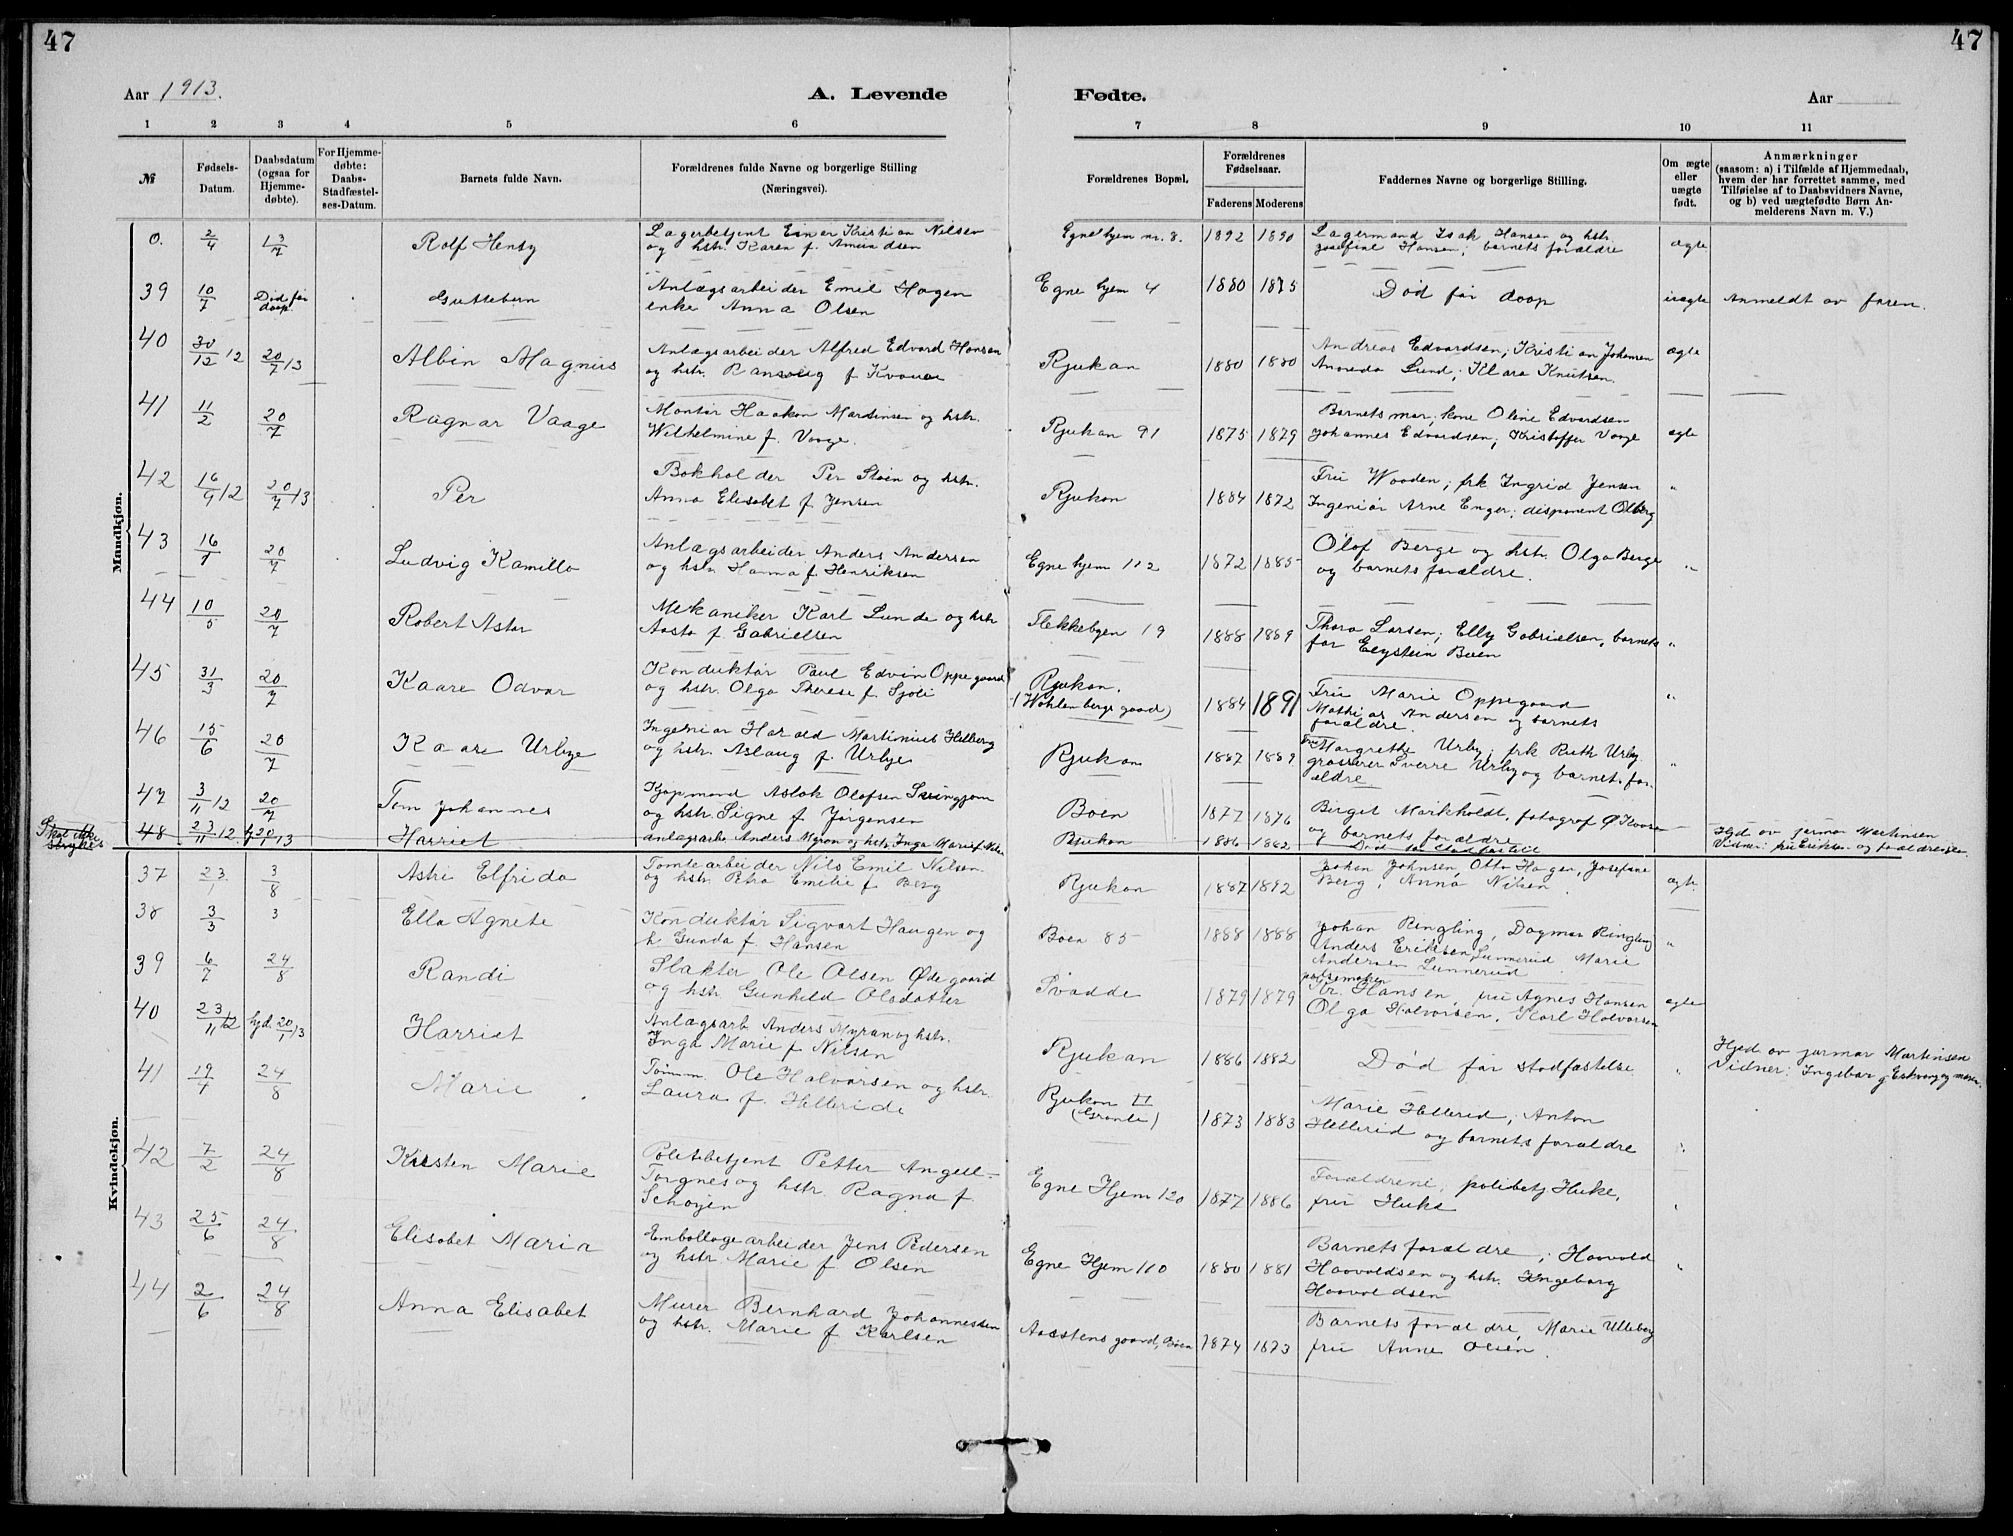 47
47
Aar 1913.
A. Levende
Fødte.
Aar
1 2 3 4 5 6
7 8 9 10 11
№
Fødsels-Datum.
Daabsdatum (ogsaa for Hjemme-døbte).
For Hjemme-døbte: Daabs-Stadfæstel-ses-Datum.
Barnets fulde Navn.
Forældrenes fulde Navne og borgerlige Stilling (Næringsvei).
Forældrenes Bopæl.
Forældrenes Fødselsaar.
Faderens Moderens
Faddernes Navne og borgerlige Stilling.
Om ægte eller uægte født.
Anmærkninger
(saasom: a) i Tilfælde af Hjemmedaab, hvem der har forrettet samme, med Tilføielse af to Daabsvidners Navne, og b) ved uægtefødte Børn An-melderens Navn m. V.)
Mandkjøn.
0. 2/4 13/7 Rolf Henry
Lagerbetjent Einar Kristian Nilsen
og hstr. Karen f. Amundsen
Egne hjem nr. 8. 1892 1890
Lagermand Isak Hansen og hstr.
Josefine Hansen; barnets forældre
ægte
39 10/7 Død før daap Guttebarn
Anlægsarbeider Emil Hagen
enke Anna Olsen
Egne hjem 4 1880 1875 Død før daap uægte Anmeldt av faren.
40 30/12 12 20/7 13 Albin Magnus
Anlægsarbeider Alfred Edvard Hansen
og hstr.
Rjukan 1880 1880
Andreas Edvardsen; Kristian Johansen
Lund; Klara Knutsen.
ægte
41 11/2 20/7 Ragnar Vaage
Montør Haakon Martinsen og hstr.
Wilhelmine f. Vaage.
Rjukan 91 1875 1879
Barnets mor; kone Oline Edvardsen
Johannes Edvardsen; Kristoffer Vaage
ægte
42 16/9 12 20/7 13 Per
Bokholder Per Støen og hstr.
Anna Elisabet f. Jensen
Rjukan 1884 1872
Fru Wooden; frk Ingrid Jensen
Ingeniør Arne Enger; disponent Olberg
"
43 16/4 20/7 Ludvig Kamillo
Anlægsarbeider Anders Andersen
og hstr. Hanna f. Henriksen
Egne hjem 112 1872 1885
Olof Berge og hstr. Olga Berge
og barnets forældre.
"
44 10/5 20/7 Robert Astor
Mekaniker Karl Lunde og hstr
Aasta f. Gabrielsen
Flekkebyen 19 1888 1889
Thora Larsen; Elly Gabrielsen, barnets
far Eystein Bøen
"
45 31/3 20/7 Kaare Odvar
Konduktør Paul Edvin Oppegaard
og hstr. Olga Therese f. Sjøli
Rjukan.
(Wohlenbergs gaard) 1884 1891
Fru Marie Oppegaard
Mathias Andersen og barnets
forældre.
"
46 15/6 20/7 Kaare Urbye
Ingeniør Harald Martinius Helberg
og hstr. Aslaug f. Urbye
Rjukan 1887 1889
Fru Margrethe Urby; frk Ruth Urby.
grosserer Sverre Urby og barnets for
ældre
"
47 3/11 12 20/7 Tom Johannes
Kjøpmand Aslak Olafsen
og hstr. Signe f. Jørgensen
Bøen 1877 1876
Berget Markholdt, fotograf Ø
og barnets forældre
Skal ikke strykes
48 23/11 12 20/1 13 Harriet
Anlægsarb. Anders Myran og hstr. Inga Marie f. Nilsen
Rjukan 1886 1882 Død før stadfæstelse
Hjd. av jormor Martinsen
Vidner: fru Eriksen og
Kvindekjøn.
37 23/1 3/8 Astri Elfrida
Tomtearbeider Nils Emil Nilsen
og hstr. Petra Emilie f Berg
Rjukan 1887 1892
Johan Johnsen, Otto Hagen, Josefine
Berg, Anna Nilsen
ægte
38 3/3 3 Ella Agnete
Konduktør Sigvart Haugen og
h. Gunda f. Hansen
Bøen 85 1888 1888
Johan Ringling, Dagmar Ringling
Anders Eriksen Lunnerud Marie
Andersen Lunnerud
"
39 6/7 24/8 Randi
Slakter Ole Olsen Ødegaard
og hstr Gunhild Olsdatter
Svadde 1879 1879
pølsemaker
Kr. Hansen, fru Agnes Hansen
Olga Halvorsen, Karl Halvorsen
ægte
40 23/11 12 hjd. 20/1 13 Harriet
Anlægsarb Anders Myran og hstr.
Inga Marie f Nilsen
Rjukan 1886 1882 Død før stadfæstelse "
Hjd. av jormor Martinsen
Vidner: Ingebor
41 19/4 24/8 Marie
Tømm. Ole Halvorsen og hstr.
Laura f. Helleride
Rjukan II
(Grønli) 1873 1883
Marie Hellerid, Anton
Hellerid og barnets forældre
"
42 7/2 24/8 Kirsten Marie
Politibetjent Petter Angell-
Torgnes og hstr. Ragna f
Schøyen
Egne Hjem 120 1877 1886
Forældrene, polibetj Huke,
fru Huke
"
43 25/6 24/8 Elisabet Maria
Emballagearbeider Jens Pedersen
og hstr Marie f Olsen
Egne Hjem 110 1880 1881
Barnets forældre; Haavald
Haavaldsen og hstr. Ingeborg
Haavaldsen
"
44 2/6 24/8 Anna Elisabet
Murer Bernhard Johannessen
og hstr. Marie f Karlsen
Aasstens gaard, Bøen 1874 1873
Barnets forældre, Marie Ulleberg
fru Anne Olsen.